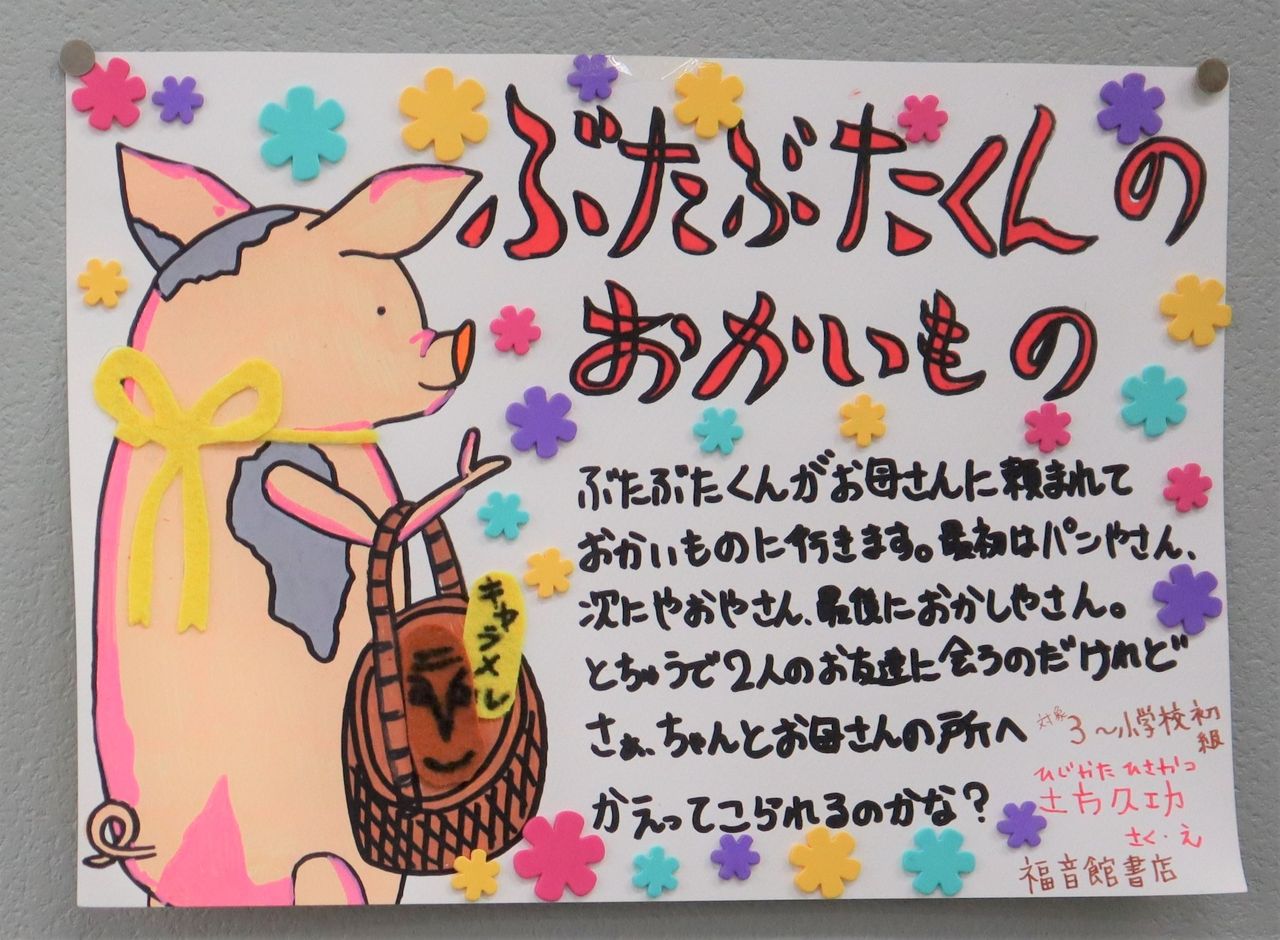 ぶたぶたくんの
おかいもの
ぶたぶたくんがお母さんに頼まれて
おかいものに行きます。最初はパンやさん、
次にやおやさん、最後におかしやさん。
とちゅうで2人のお友達に会うのだけれど
さぁ、ちゃんとお母さんの所へ
かえってこられるのかな?
キャラメル
対象 3〜小学校初級
ひじかた ひさかつ
土方久功
さく・え
福音館書店